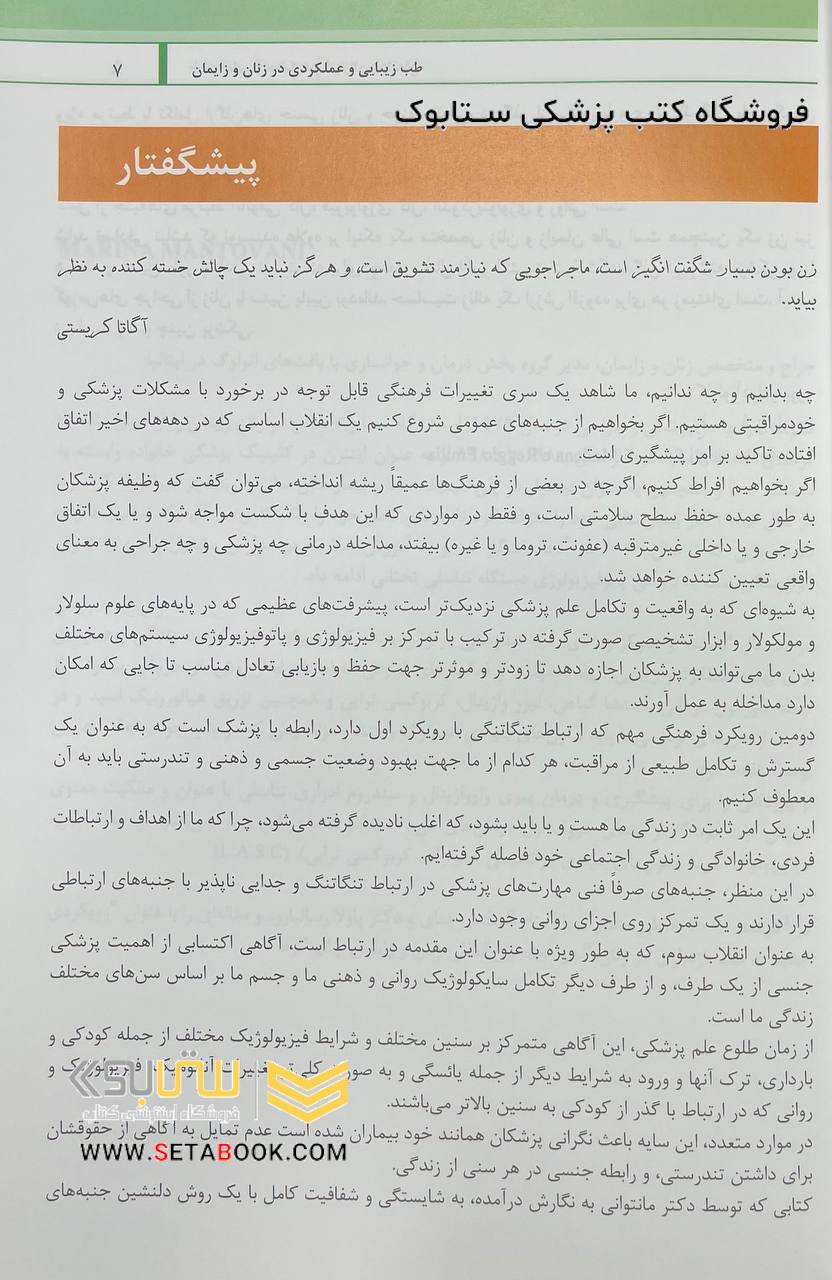 طب زیبایی و عملکردی در زنان و زایمان ۷
فروشگاه کتب پزشکی ستابوک
پیشگفتار
زن بودن بسیار شگفت انگیز است، ماجراجویی که نیازمند تشویق است، و هرگز نباید یک چالش خسته کننده به نظر
بیاید.
آگاتا کریستی
چه بدانیم و چه ندانیم، ما شاهد یک سری تغییرات فرهنگی قابل توجه در برخورد با مشکلات پزشکی و
خودمراقبتی هستیم. اگر بخواهیم از جنبه‌های عمومی شروع کنیم یک انقلاب اساسی که در دهه‌های اخیر اتفاق
افتاده تاکید بر امر پیشگیری است.
اگر بخواهیم افراط کنیم، اگرچه در بعضی از فرهنگ‌ها عمیقاً ریشه انداخته، می‌توان گفت که وظیفه پزشکان
به طور عمده حفظ سطح سلامتی است، و فقط در مواردی که این هدف با شکست مواجه شود و یا یک اتفاق
خارجی و یا داخلی غیرمترقبه (عفونت، تروما و یا غیره) بیفتد، مداخله درمانی چه پزشکی و چه جراحی به معنای
واقعی تعیین کننده خواهد شد.
به شیوه‌ای که به واقعیت و تکامل علم پزشکی نزدیک‌تر است، پیشرفت‌های عظیمی که در پایه‌های علوم سلولار
و مولکولار و ابزار تشخیصی صورت گرفته در ترکیب با تمرکز بر فیزیولوژی و پاتوفیزیولوژی سیستم‌های مختلف
بدن ما می‌تواند به پزشکان اجازه دهد تا زودتر و موثرتر جهت حفظ و بازیابی تعادل مناسب تا جایی که امکان
دارد مداخله به عمل آورند.
دومین رویکرد فرهنگی مهم که ارتباط تنگاتنگی با رویکرد اول دارد، رابطه با پزشک است که به عنوان یک
گسترش و تکامل طبیعی از مراقبت، هر کدام از ما جهت بهبود وضعیت جسمی و ذهنی و تندرستی باید به آن
معطوف کنیم.
این یک امر ثابت در زندگی ما هست و یا باید بشود، که اغلب نادیده گرفته می‌شود، چرا که ما از اهداف و ارتباطات
فردی، خانوادگی و زندگی اجتماعی خود فاصله گرفته‌ایم.
در این منظر، جنبه‌های صرفاً فنی مهارت‌های پزشکی در ارتباط تنگاتنگ و جدایی ناپذیر با جنبه‌های ارتباطی
قرار دارند و یک تمرکز روی اجزای روانی وجود دارد.
به عنوان انقلاب سوم، که به طور ویژه با عنوان این مقدمه در ارتباط است، آگاهی اکتسابی از اهمیت پزشکی
جنسی از یک طرف، و از طرف دیگر تکامل سایکولوژیک روانی و ذهنی ما و جسم ما بر اساس سن‌های مختلف
زندگی ما است.
از زمان طلوع علم پزشکی، این آگاهی متمرکز بر سنین مختلف و شرایط فیزیولوژیک مختلف از جمله کودکی و
بارداری، ترک آنها و ورود به شرایط دیگر از جمله یائسگی و به صورت کلی تغییرات آناتومیک، فیزیولوژیک و
روانی که در ارتباط با گذر از کودکی به سنین بالاتر می‌باشند.
در موارد متعدد، این سایه باعث نگرانی پزشکان همانند خود بیماران شده است عدم تمایل به آگاهی از حقوقشان
برای داشتن تندرستی، و رابطه جنسی در هر سنی از زندگی.
کتابی که توسط دکتر مانتوانی به نگارش درآمده، به شایستگی و شفافیت کامل با یک روش دلنشین جنبه‌های
ستابوک
فروشگاه اینترنتی کتاب
WWW.SETABOOK.COM